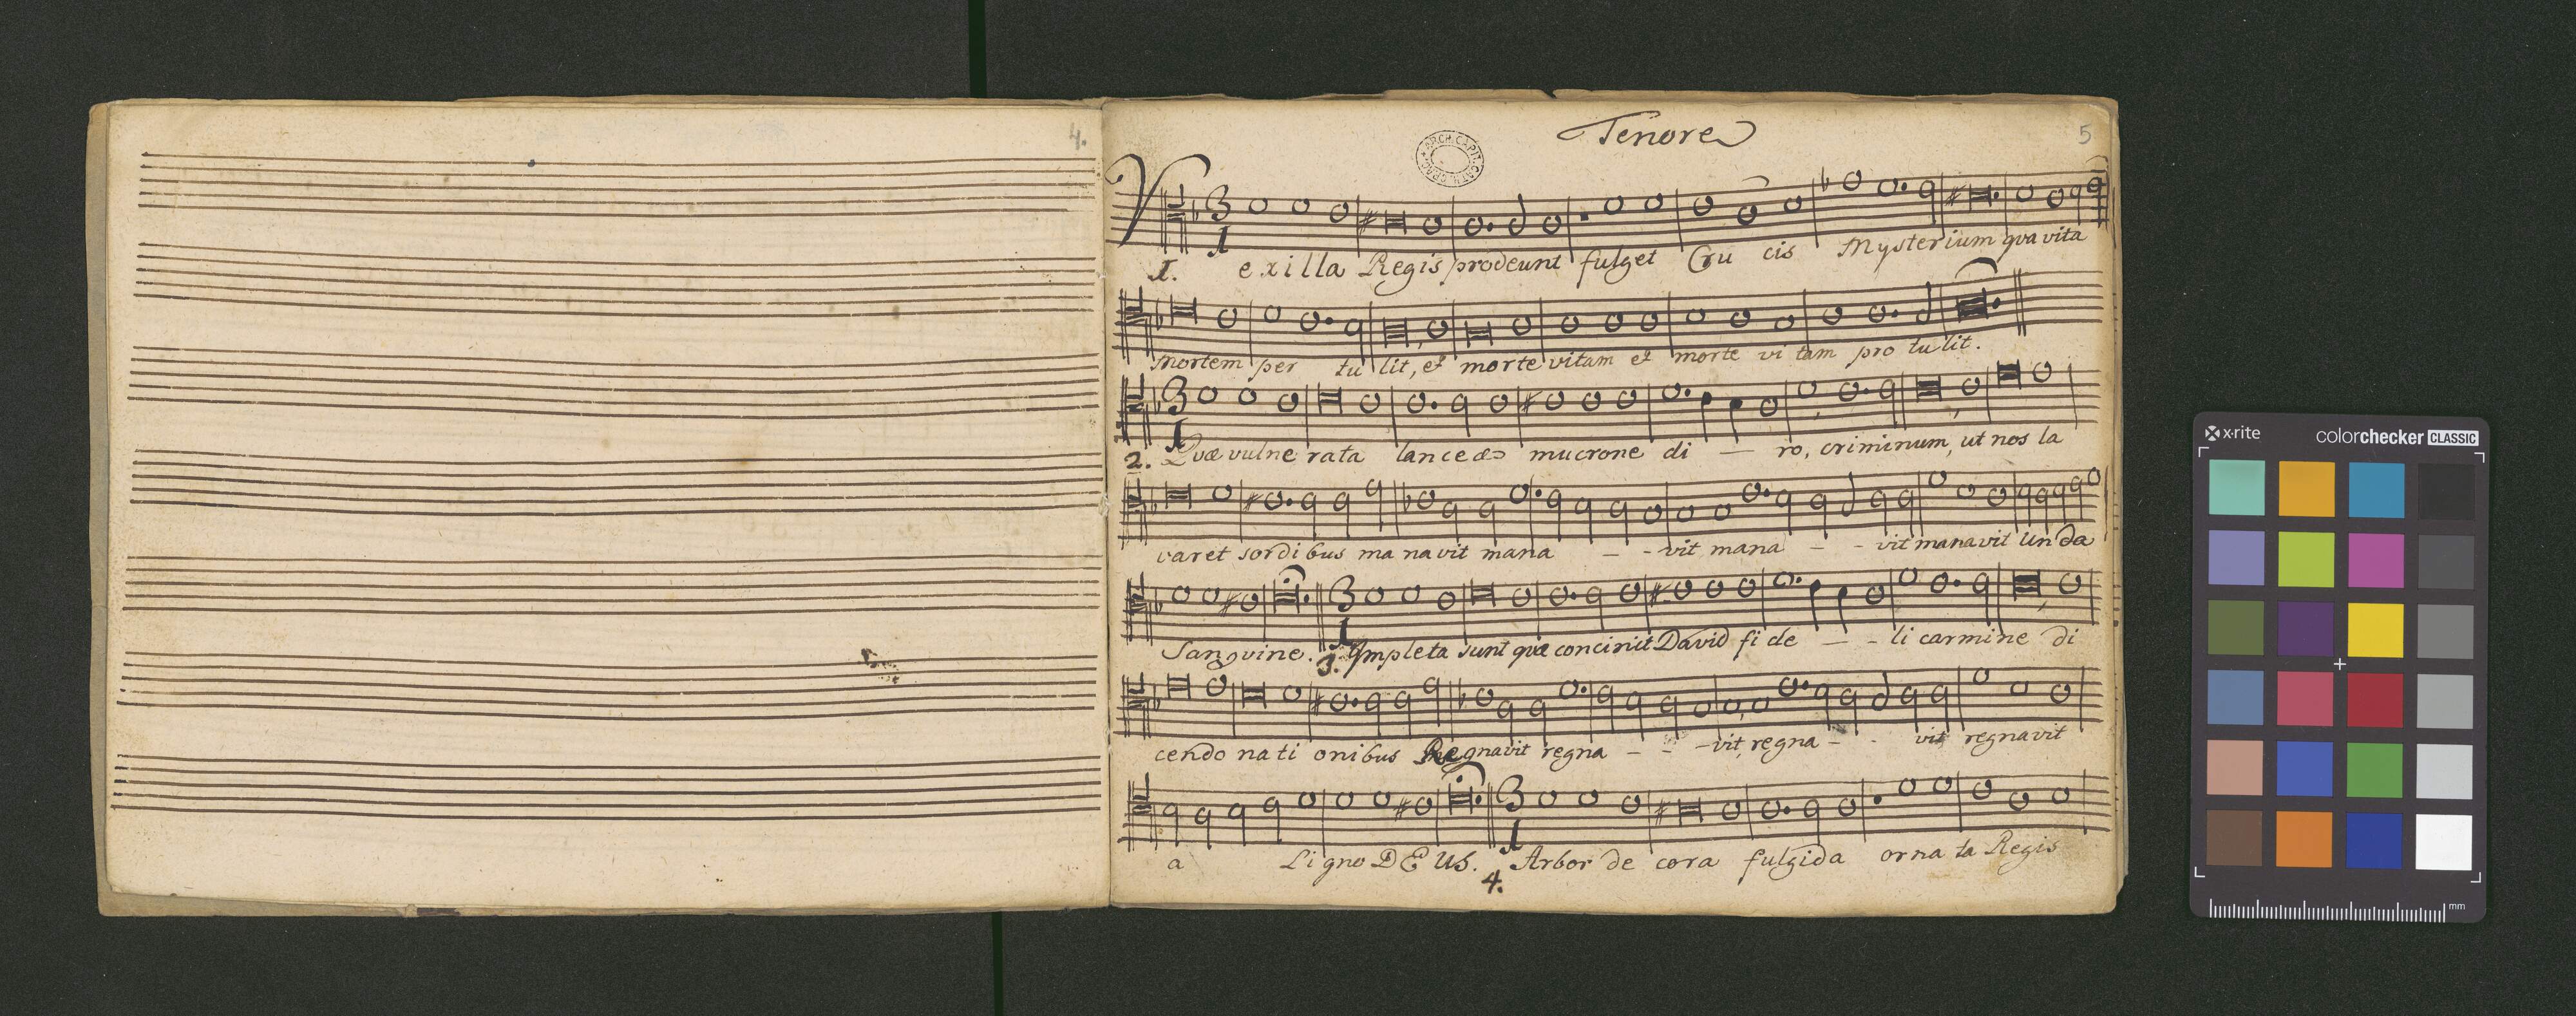 4.
Tenore
5
ARCH. CAPIT. CATH. CRAC.
V
3
1
1. exilla Regis prodeunt fulget Cru cis Mysterium qva vita
mortem per tu lit, et morte vitam et morte vi tam pro tulit.
3
1
2. Qvæ vulne rata lanceæ mucrone di — ro, criminum, ut nos la
varet sordi bus ma navit mana - - vit mana - - vit manavit unda
3
1
Sangvine. 3. Impleta sunt qvæ concinit David fi de — - li carmine di
cendo na ti onibus Regnavit regna - - - vit, regna - - vit regnavit
3
1
a Li gno DEUS. 4. Arbor de cora fulgida orna ta Regis
x·rite
colorchecker CLASSIC
mm